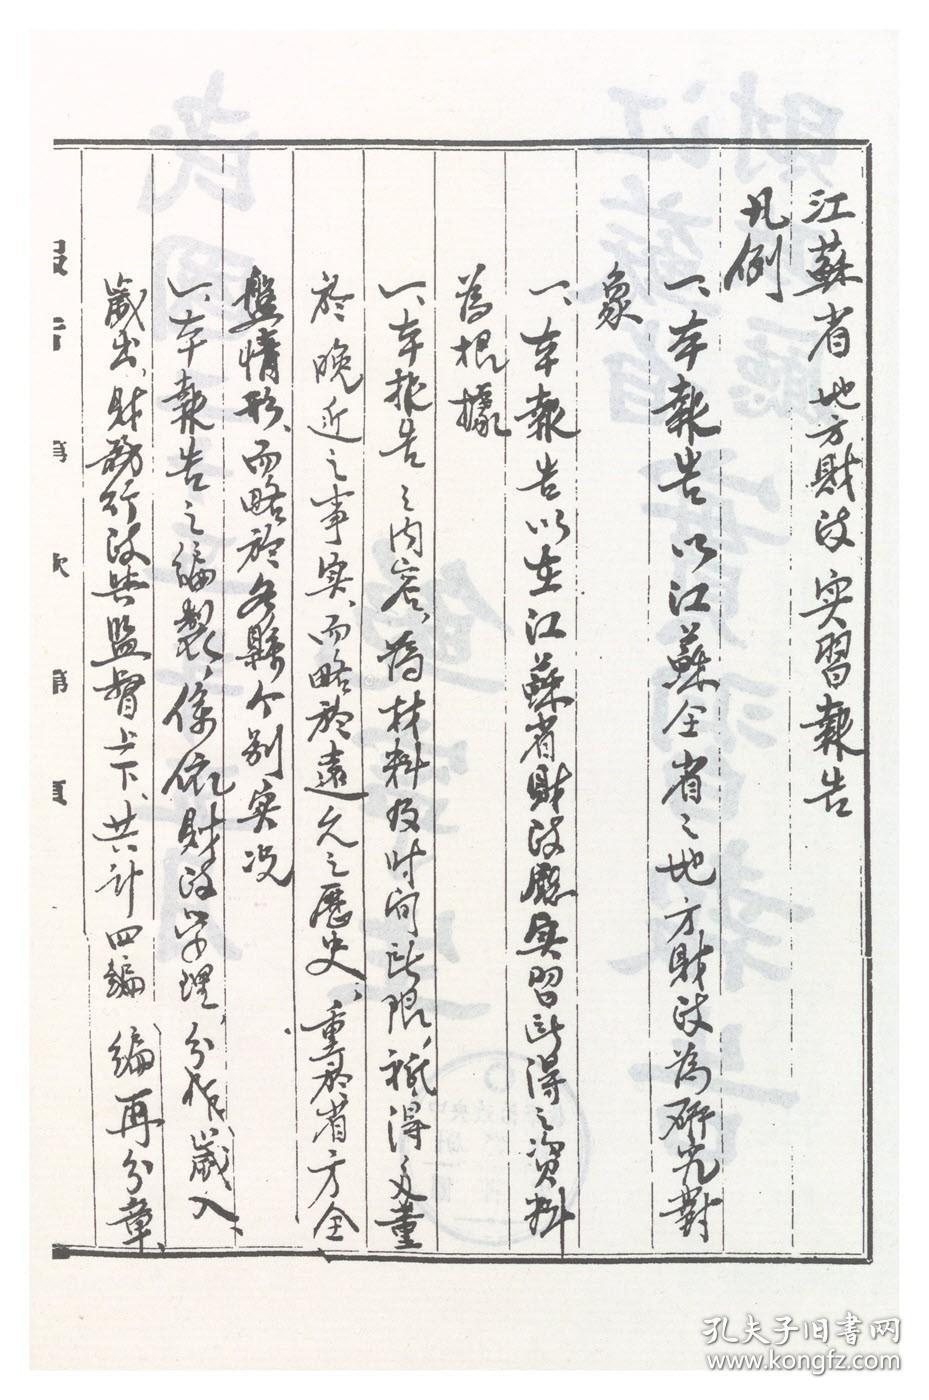 江蘇省地方財政实習報告
凡例
一、本報告以江蘇全省之地方財政為研究對
象
一、本報告以在江蘇省財政廳实習所得之資料
為根據
一、本报告之内容、為材料及时间所限、祗得文重
於晚近之事实、而略於遠久之歷史、重於省方全
盤情形、而略於各縣个别实况
一、本報告之編製、係依財政学理、分作歲入、
歲出、財務行政與監督上下、共計四編編再分章、
孔夫子旧書网
www.kongfz.com